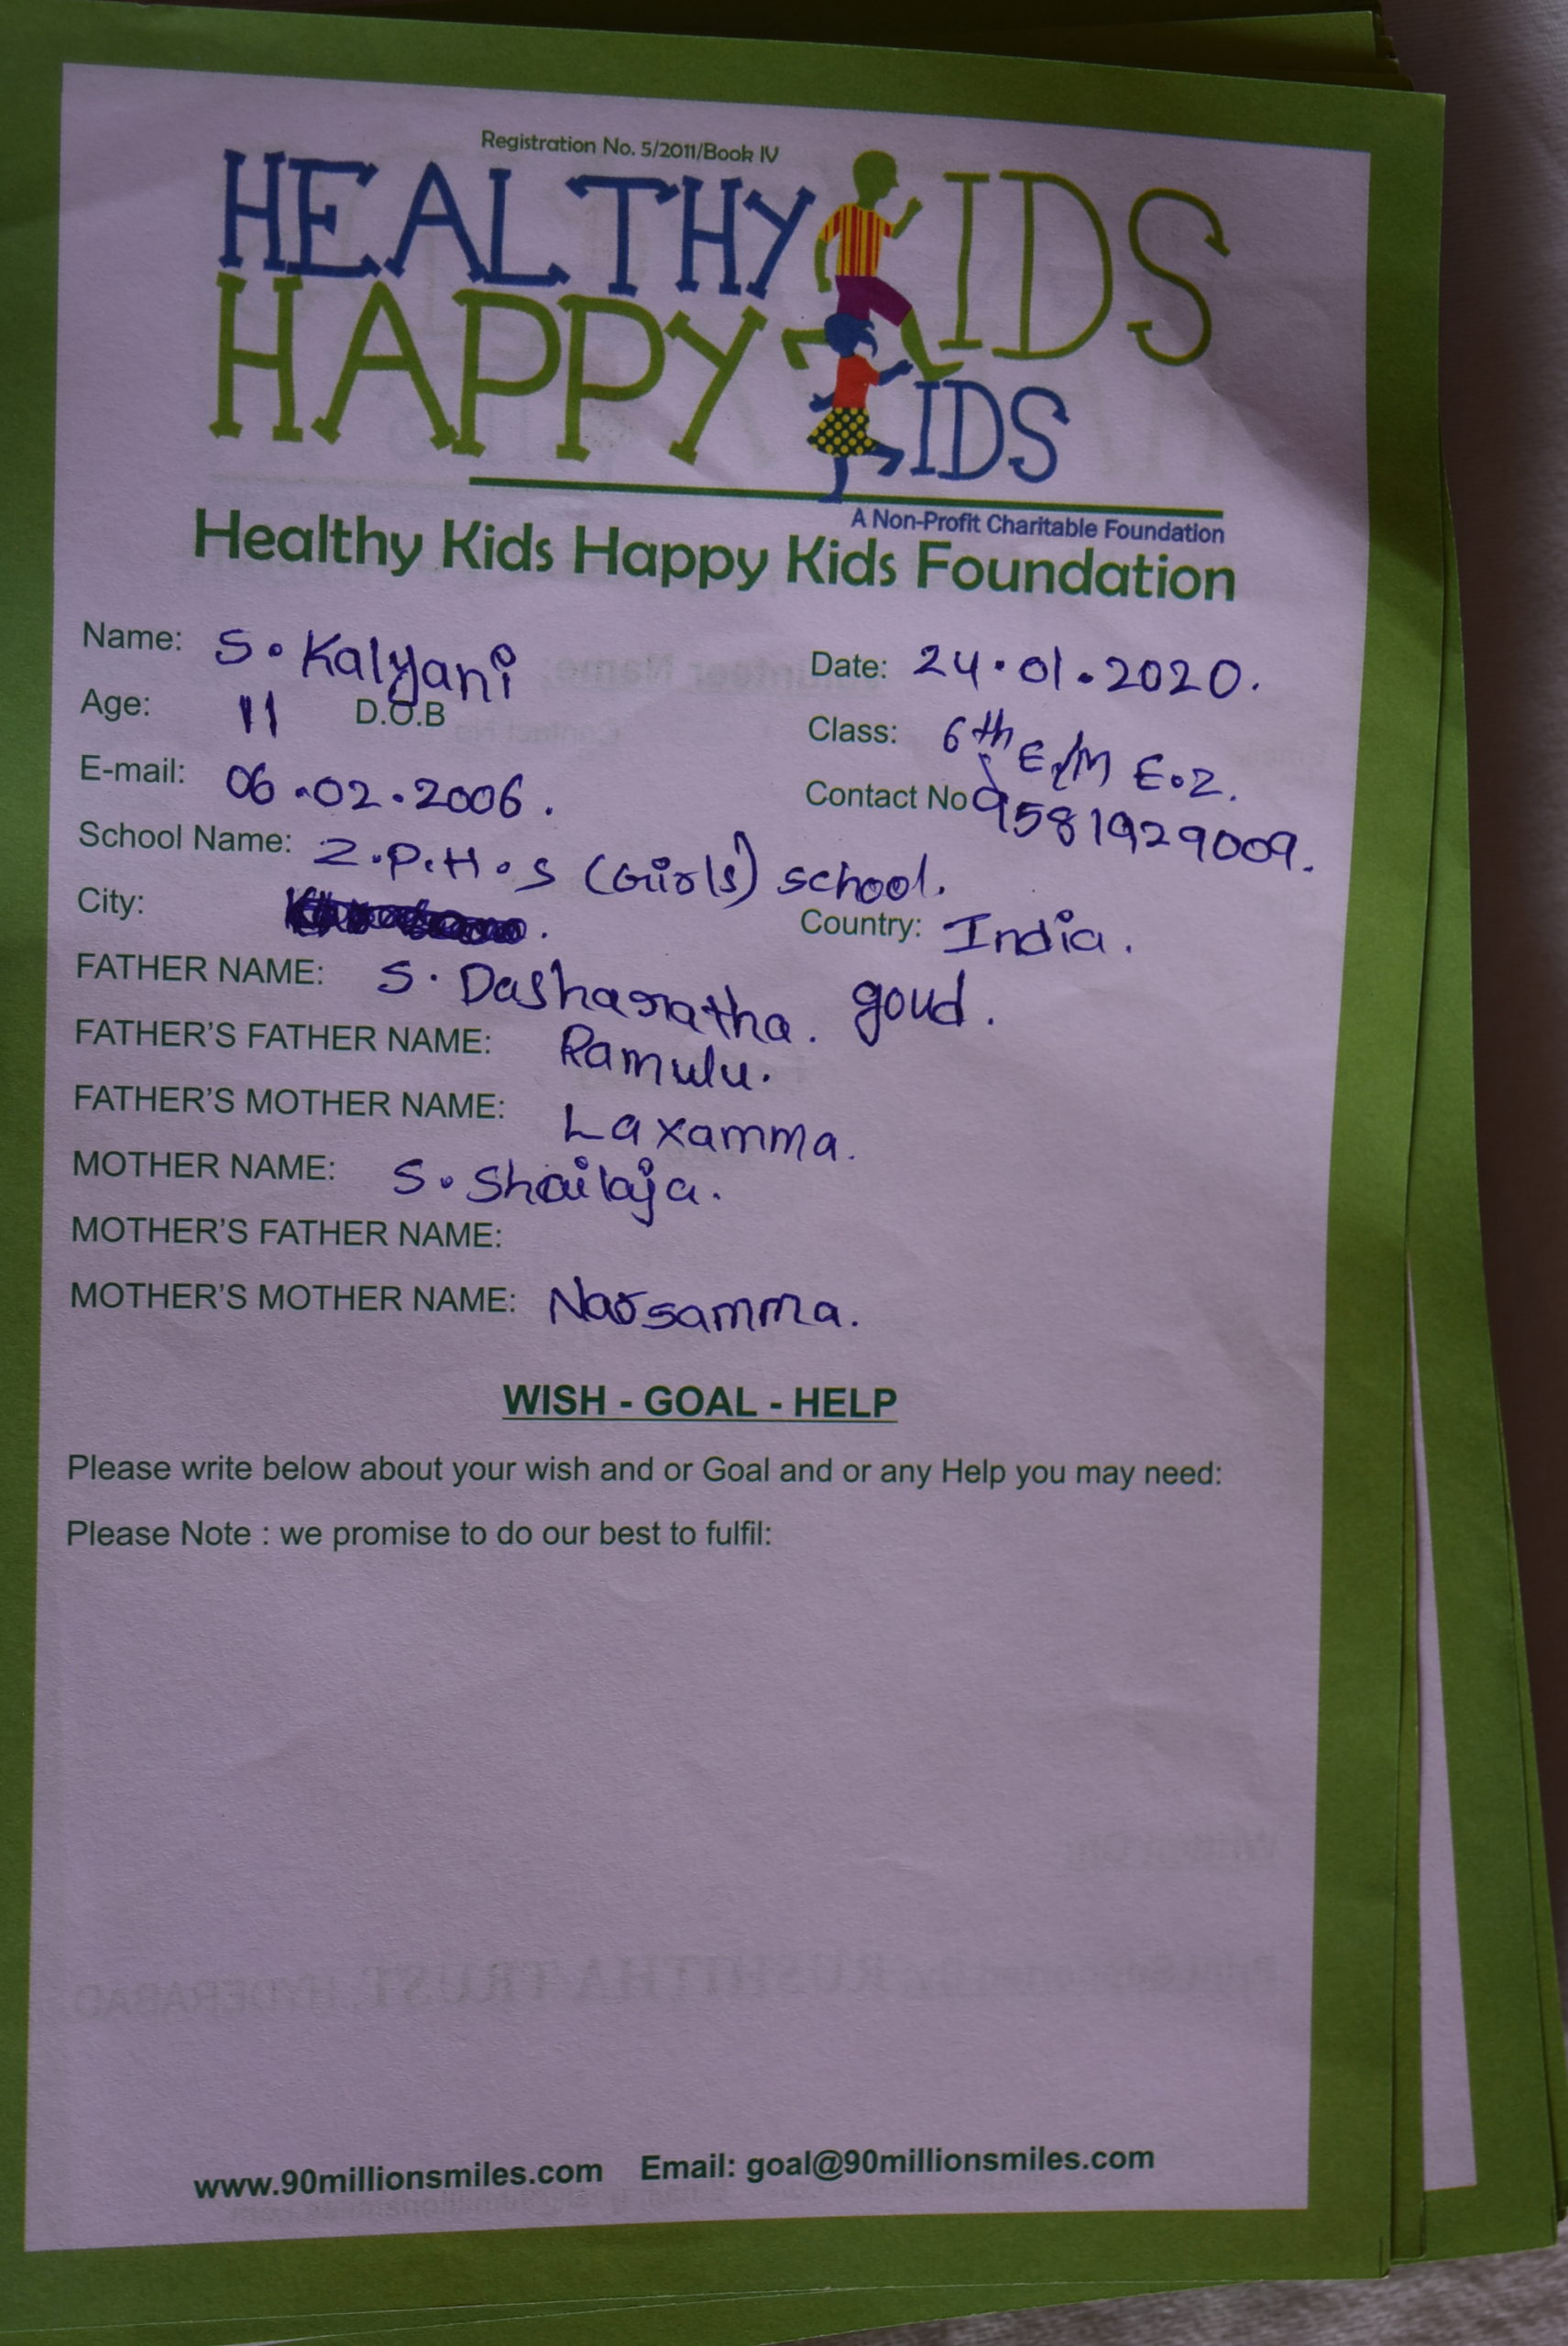 Registration No. 5/2011/Book IV
HEALTHY KIDS
HAPPY KIDS
A Non-Profit Charitable Foundation
Healthy Kids Happy Kids Foundation
Name: S. Kalyani Date: 24.01.2020.
Age: 11 D.O.B Class: 6th E/M E.Z.
E-mail: 06.02.2006. Contact No 9581929009.
School Name: Z.P.H.S (Girls) school.
City: Country: India.
FATHER NAME: S. Dasharatha. goud.
FATHER'S FATHER NAME: Ramulu.
FATHER'S MOTHER NAME: Laxamma.
MOTHER NAME: S. Shailaja.
MOTHER'S FATHER NAME:
MOTHER'S MOTHER NAME: Narsamma.
WISH - GOAL - HELP
Please write below about your wish and or Goal and or any Help you may need:
Please Note : we promise to do our best to fulfil:
www.90millionsmiles.com Email: goal@90millionsmiles.com